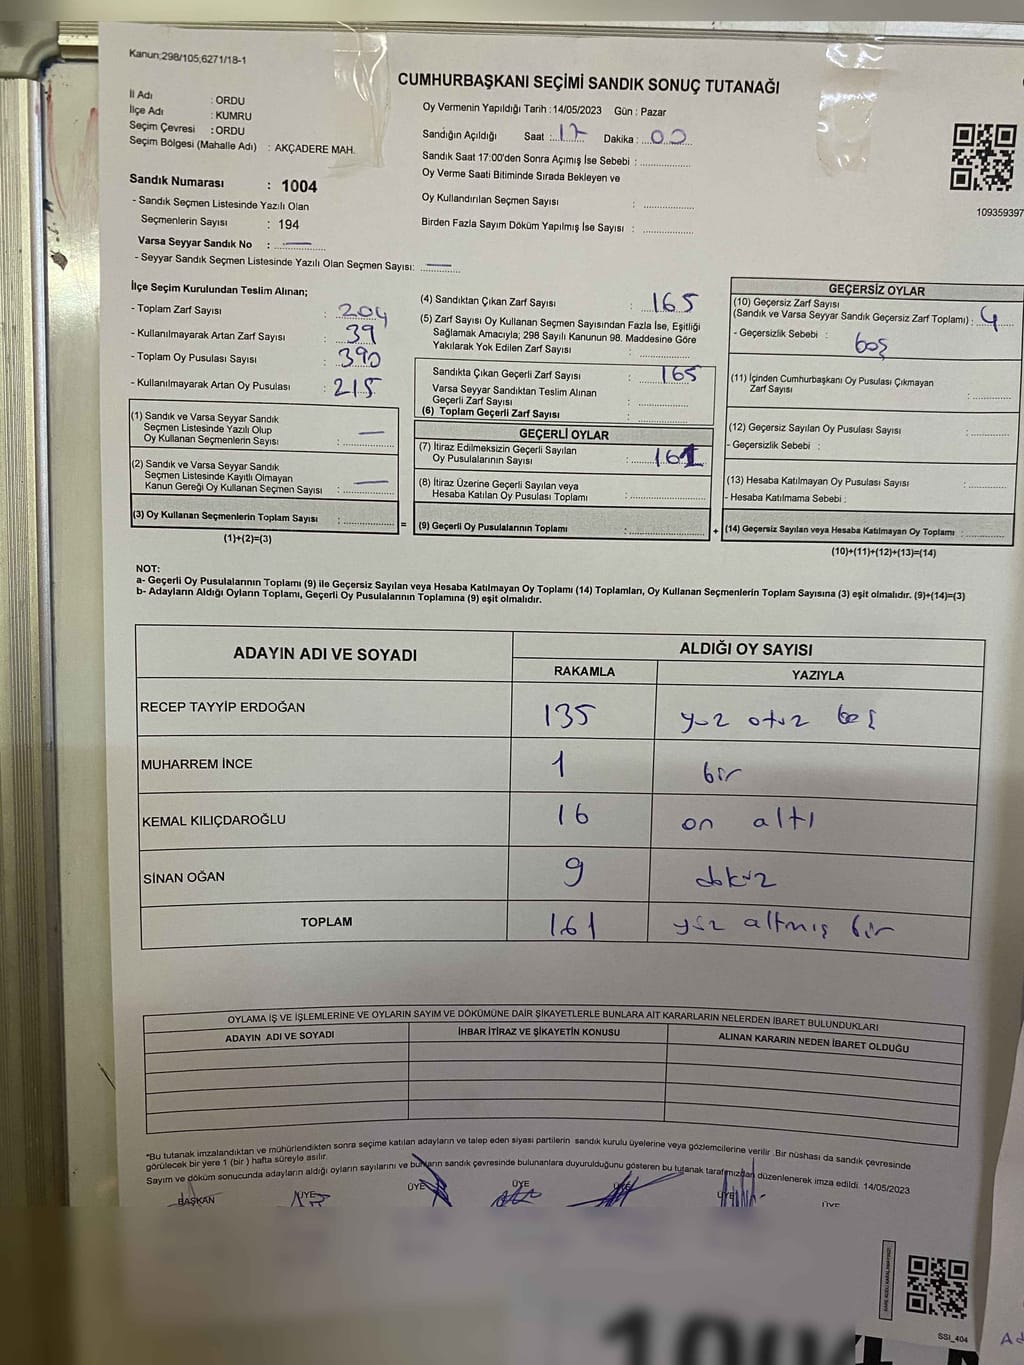 Kanun;298/105;6271/18-1
CUMHURBAŞKANI SEÇİMİ SANDIK SONUÇ TUTANAĞI
İl Adı : ORDU
İlçe Adı : KUMRU
Seçim Çevresi : ORDU
Seçim Bölgesi (Mahalle Adı) : AKÇADERE MAH.
Oy Vermenin Yapıldığı Tarih :14/05/2023 Gün : Pazar
Sandığın Açıldığı Saat :.. 17 Dakika : 00
Sandık Saat 17:00'den Sonra Açımış İse Sebebi :
Oy Verme Saati Bitiminde Sırada Bekleyen ve
Oy Kullandırılan Seçmen Sayısı :
Birden Fazla Sayım Döküm Yapılmış İse Sayısı :
109359397
Sandık Numarası : 1004
- Sandık Seçmen Listesinde Yazılı Olan
Seçmenlerin Sayısı : 194
Varsa Seyyar Sandık No : —
- Seyyar Sandık Seçmen Listesinde Yazılı Olan Seçmen Sayısı: —
İlçe Seçim Kurulundan Teslim Alınan;
- Toplam Zarf Sayısı : 204
- Kullanılmayarak Artan Zarf Sayısı : 39
- Toplam Oy Pusulası Sayısı : 390
- Kullanılmayarak Artan Oy Pusulası : 215
(1) Sandık ve Varsa Seyyar Sandık
Seçmen Listesinde Yazılı Olup
Oy Kullanan Seçmenlerin Sayısı : —
(2) Sandık ve Varsa Seyyar Sandık
Seçmen Listesinde Kayıtlı Olmayan
Kanun Gereği Oy Kullanan Seçmen Sayısı : —
(3) Oy Kullanan Seçmenlerin Toplam Sayısı :
(1)+(2)=(3)
=
(4) Sandıktan Çıkan Zarf Sayısı : 165
(5) Zarf Sayısı Oy Kullanan Seçmen Sayısından Fazla İse, Eşitliği
Sağlamak Amacıyla; 298 Sayılı Kanunun 98. Maddesine Göre
Yakılarak Yok Edilen Zarf Sayısı :
Sandıkta Çıkan Geçerli Zarf Sayısı : 165
Varsa Seyyar Sandıktan Teslim Alınan
Geçerli Zarf Sayısı :
(6) Toplam Geçerli Zarf Sayısı :
GEÇERLİ OYLAR
(7) İtiraz Edilmeksizin Geçerli Sayılan
Oy Pusulalarının Sayısı : 161
(8) İtiraz Üzerine Geçerli Sayılan veya
Hesaba Katılan Oy Pusulası Toplamı :
(9) Geçerli Oy Pusulalarının Toplamı :
+
GEÇERSİZ OYLAR
(10) Geçersiz Zarf Sayısı
(Sandık ve Varsa Seyyar Sandık Geçersiz Zarf Toplamı) : 4
- Geçersizlik Sebebi : boş
(11) İçinden Cumhurbaşkanı Oy Pusulası Çıkmayan
Zarf Sayısı :
(12) Geçersiz Sayılan Oy Pusulası Sayısı :
- Geçersizlik Sebebi :
(13) Hesaba Katılmayan Oy Pusulası Sayısı :
- Hesaba Katılmama Sebebi :
(14) Geçersiz Sayılan veya Hesaba Katılmayan Oy Toplamı :
(10)+(11)+(12)+(13)=(14)
NOT:
a- Geçerli Oy Pusulalarının Toplamı (9) ile Geçersiz Sayılan veya Hesaba Katılmayan Oy Toplamı (14) Toplamları, Oy Kullanan Seçmenlerin Toplam Sayısına (3) eşit olmalıdır. (9)+(14)=(3)
b- Adayların Aldığı Oyların Toplamı, Geçerli Oy Pusulalarının Toplamına (9) eşit olmalıdır.
ADAYIN ADI VE SOYADI ALDIĞI OY SAYISI
RAKAMLA YAZIYLA
RECEP TAYYİP ERDOĞAN 135 yuz otuz beş
MUHARREM İNCE 1 bir
KEMAL KILIÇDAROĞLU 16 on altı
SİNAN OĞAN 9 dokuz
TOPLAM 161 yüz altmış bir
OYLAMA İŞ VE İŞLEMLERİNE VE OYLARIN SAYIM VE DÖKÜMÜNE DAİR ŞİKAYETLERLE BUNLARA AİT KARARLARIN NELERDEN İBARET BULUNDUKLARI
ADAYIN ADI VE SOYADI İHBAR İTİRAZ VE ŞİKAYETİN KONUSU ALINAN KARARIN NEDEN İBARET OLDUĞU
*Bu tutanak imzalandıktan ve mühürlendikten sonra seçime katılan adayların ve talep eden siyasi partilerin sandık kurulu üyelerine veya gözlemcilerine verilir .Bir nüshası da sandık çevresinde
görülecek bir yere 1 (bir ) hafta süreyle asılır.
Sayım ve döküm sonucunda adayların aldığı oyların sayılarını ve bunların sandık çevresinde bulunanlara duyurulduğunu gösteren bu tutanak tarafımızdan düzenlenerek imza edildi. 14/05/2023
BAŞKAN ÜYE ÜYE ÜYE ÜYE ÜYE ÜYE
SSI_404
1004